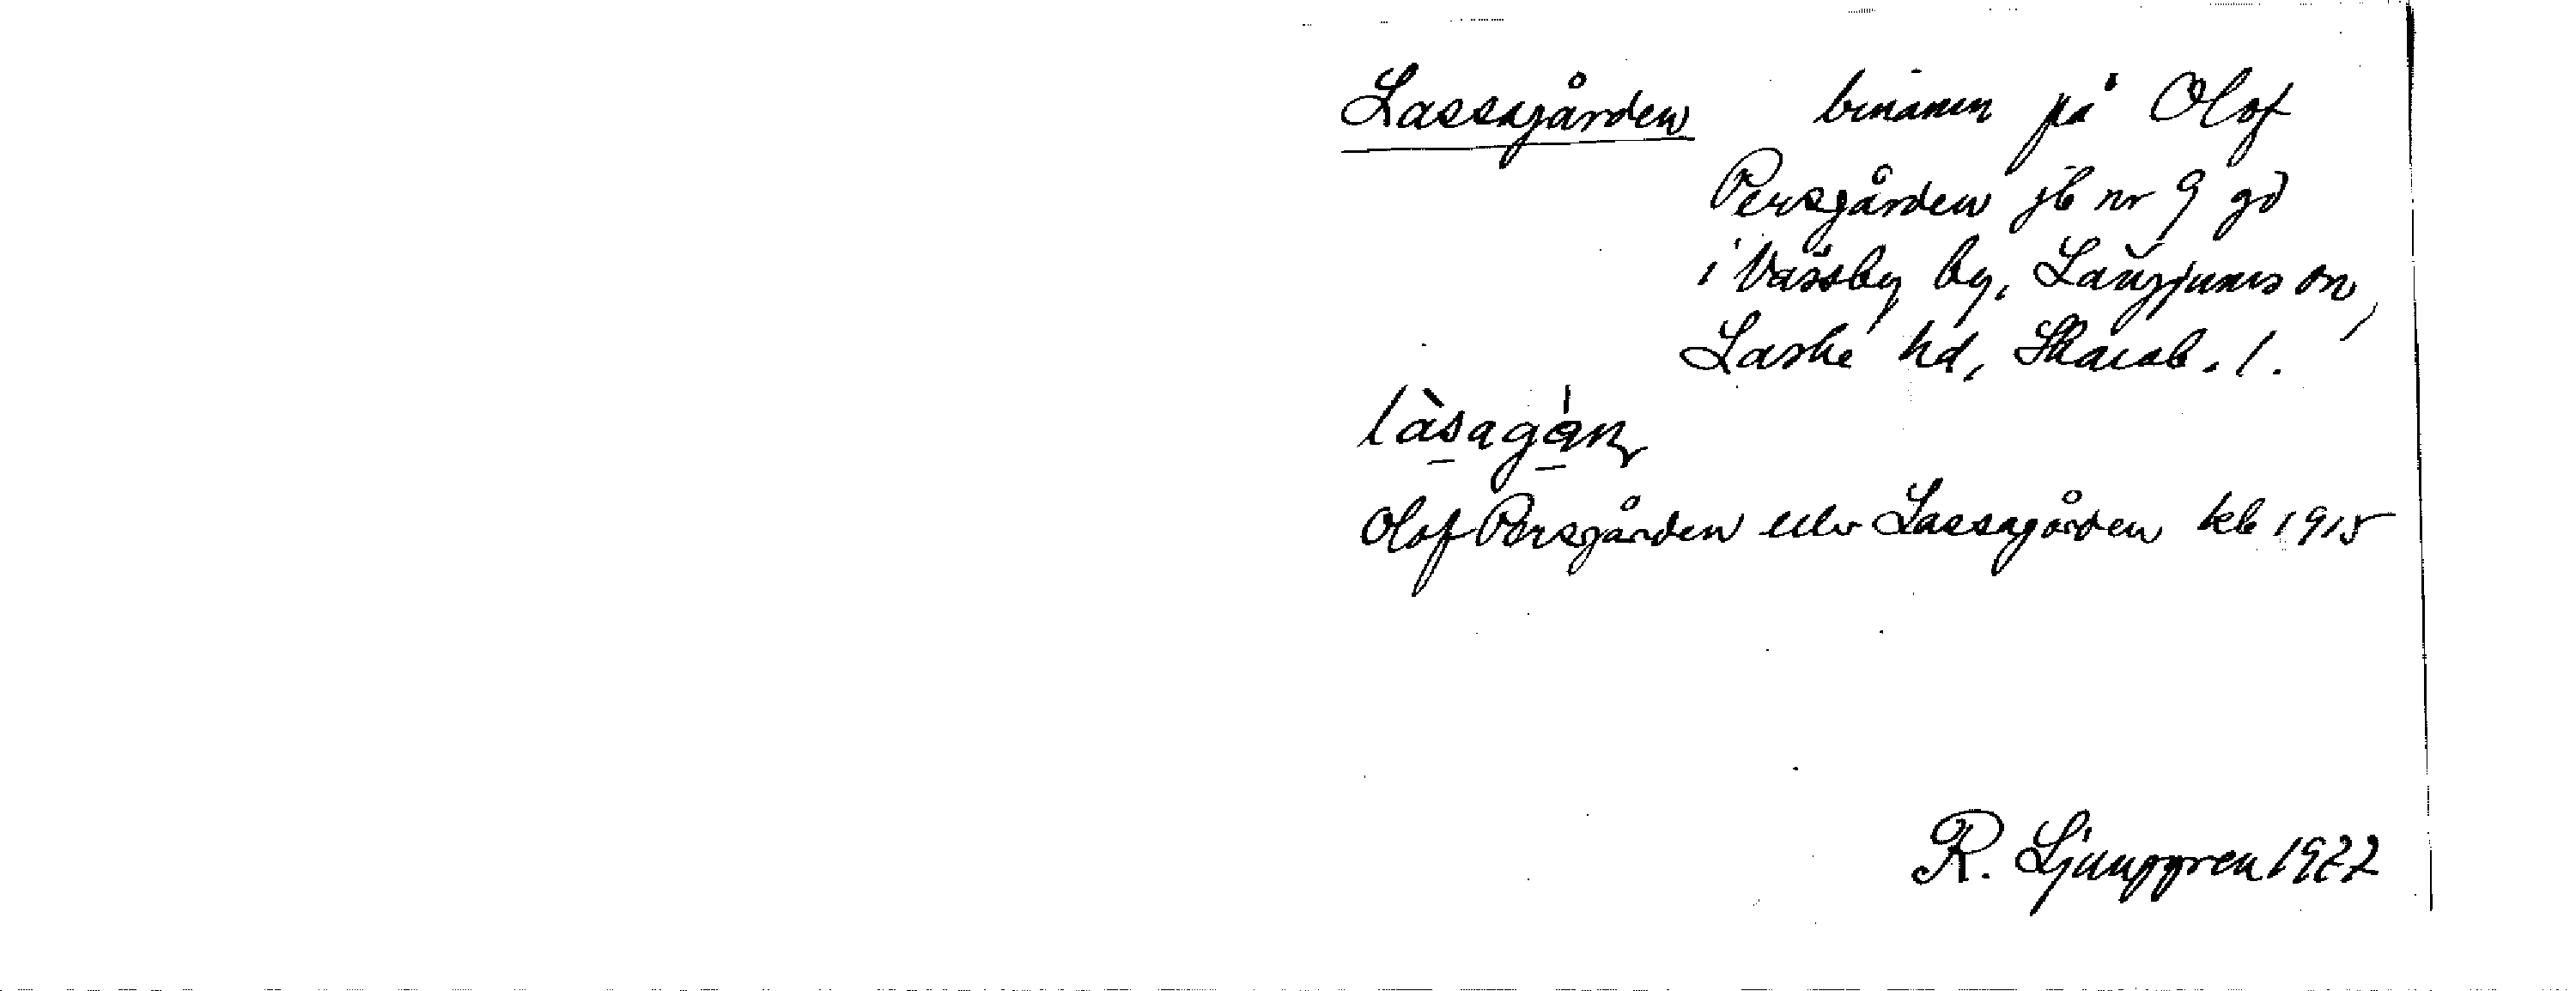 Lassagården binamn på Olof
Persgården jb nr 9 gd
i Vässby by, Långjums sn,
Laske hd, Skarab. l.
làsagán
Olof Persgården eller Lassagården kb 1915
R. Ljunggren 1922